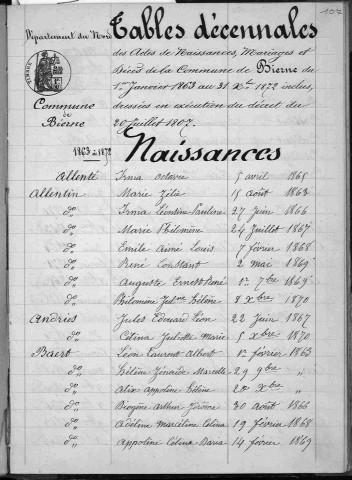 107
Département du Nord
Tables décennales
des Actes de Naissances, Mariages et
Décès de la Commune de Bierne du
1er Janvier 1863 au 31 Xbre 1872 inclus,
dressées en exécution du décret du
20 Juillet 1807.
TIMBRE
Commune
de
Bierne
1863 à 1872
Naissances
Allenté Irma Octavie 5 avril 1865
Allentin Marie Zélie 15 août 1863
do Irma Léontine Pauline 27 Juin 1866
do Marie Philomène 24 Juillet 1867
do Emile Aimé Louis 7 février 1868
do René Constant 2 mai 1869
do Auguste Ernest René 1er 7bre 1869
do Philomène Julnne Hélène 8 Xbre 1870
Andries Jules Edouard Léon 22 Juin 1867
do Célina Juliette Marie 5 Xbre 1870
Baert Léon Laurent Albert 1er février 1863
do Hélène Zénaïde Marcelle 29 9bre "
do Alix Appoline Hélène 22 Xbre "
do Arthur Jérôme 30 Août 1866
do Adéline Marceline Célina 19 février 1868
do Appoline Célina Maria 14 février 1869